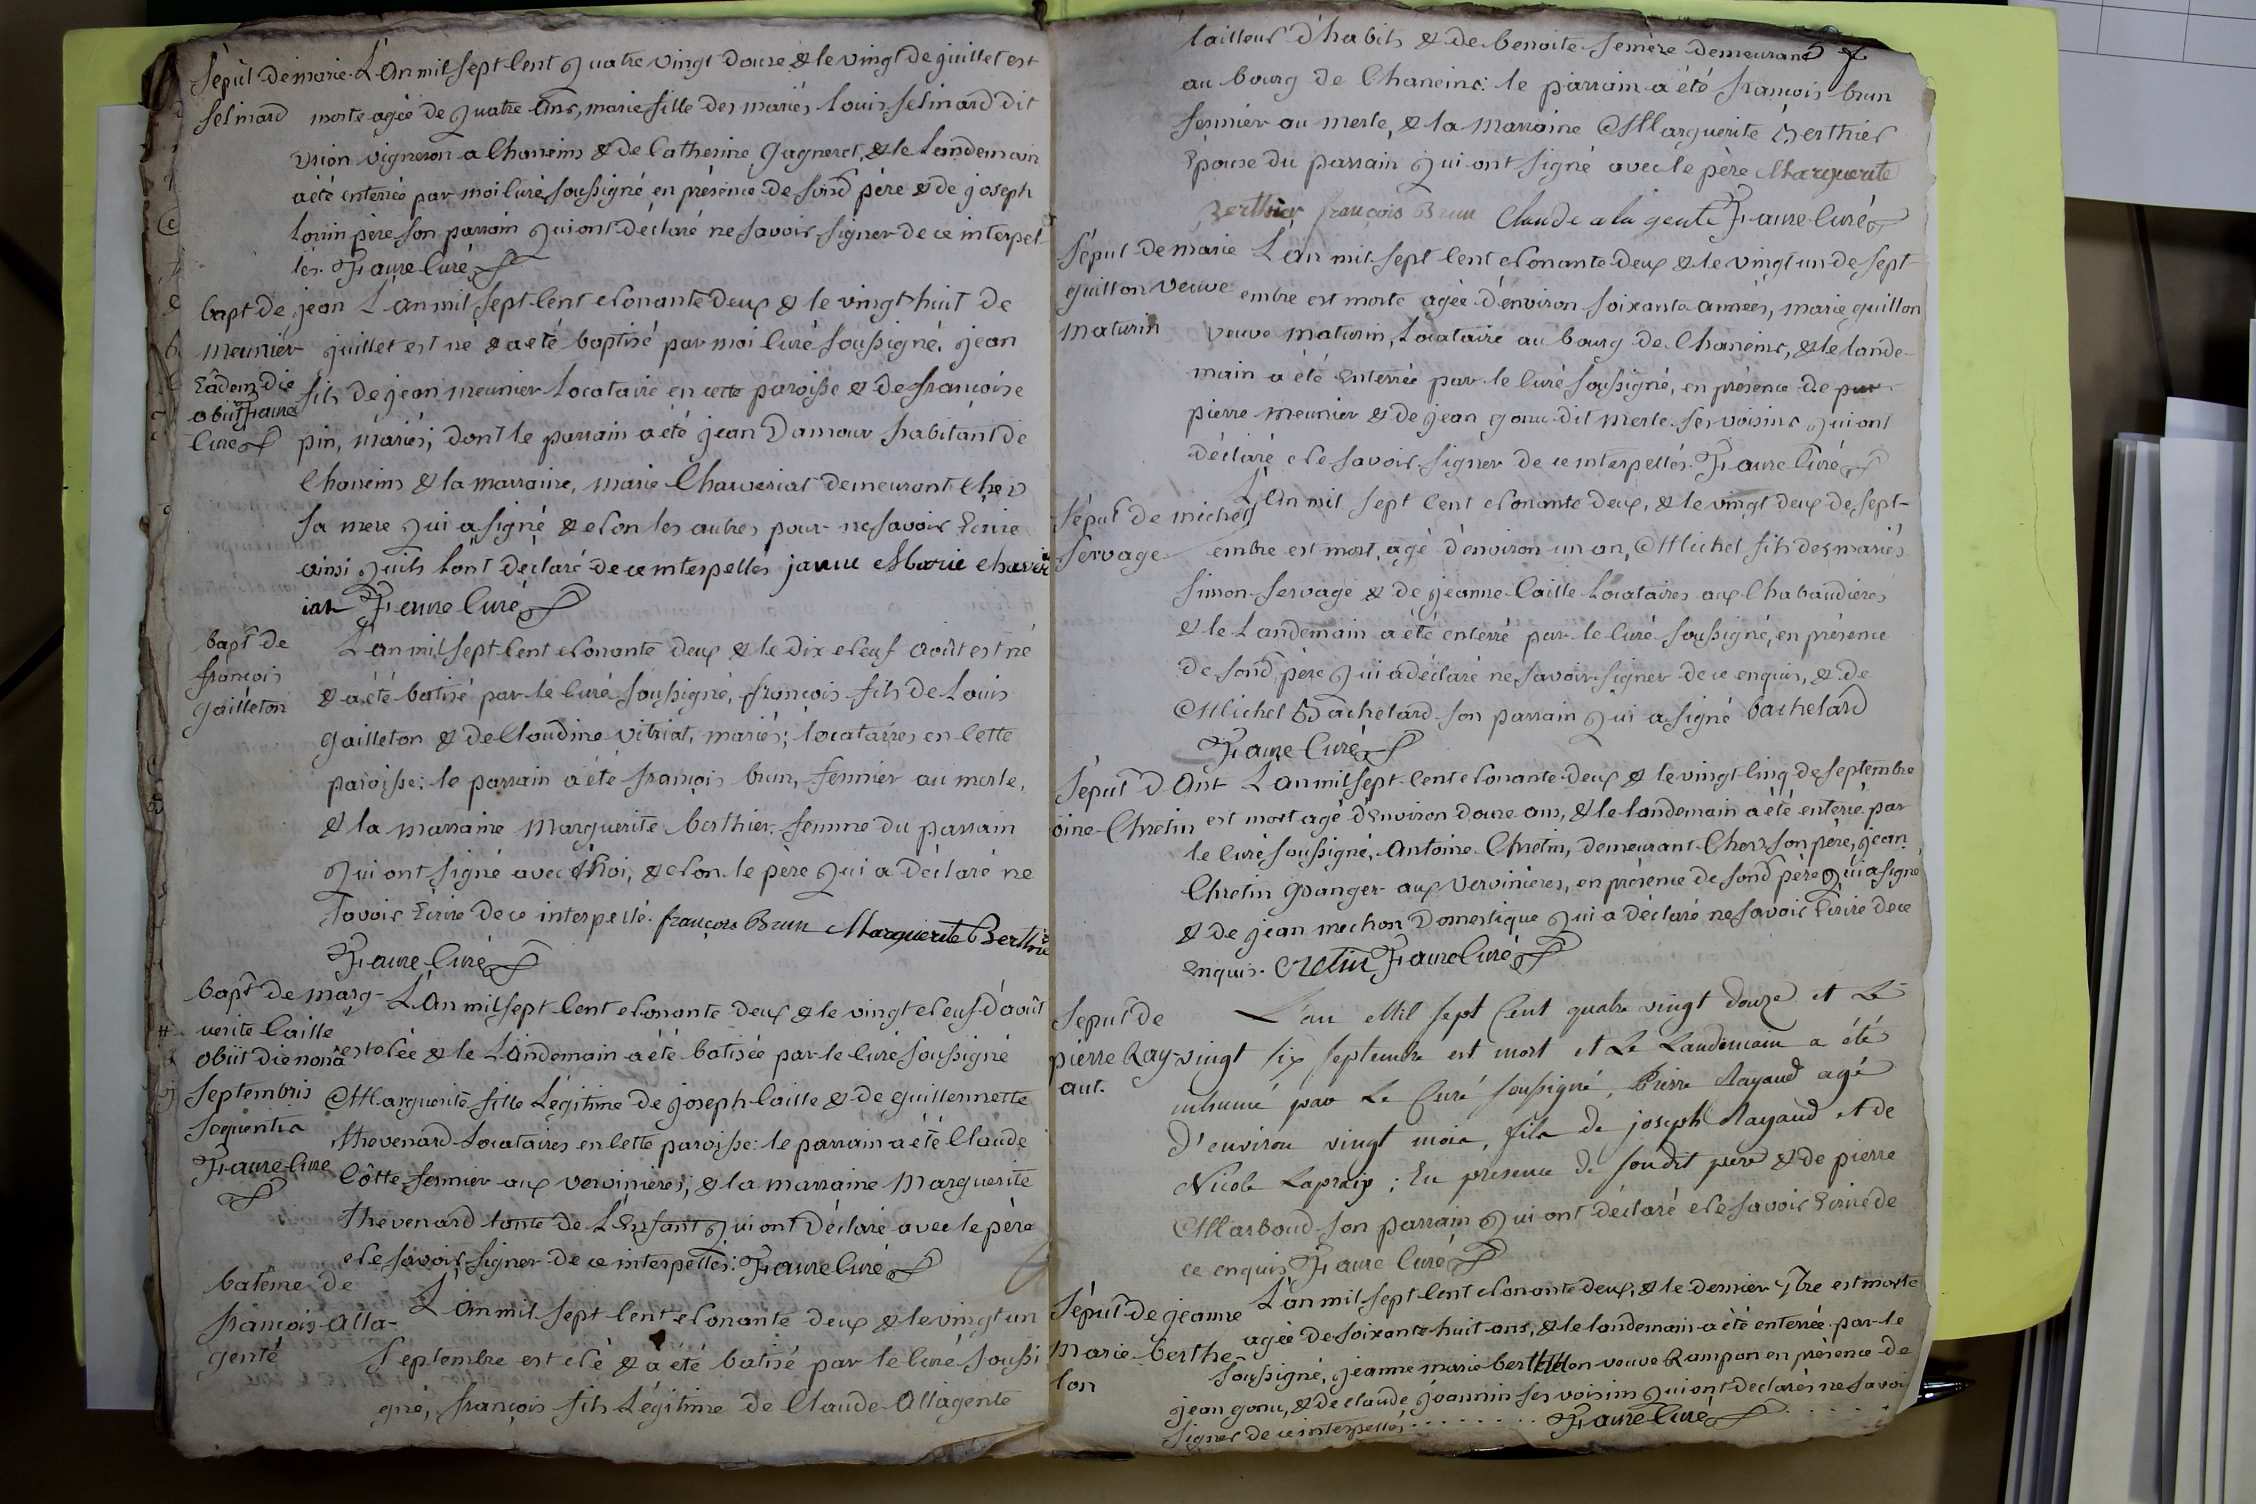 sepul de marie L'an mil sept Cent quatre vingt douze & le vingt de juillet est
felinard morte agée de quatre ans, marie fille des mariés Louis felinard dit
vrion vigneron a Chaneins & de Catherine Gagneret, & le Landemain
a été enterrée par moi Curé soussigné en présence de sond père & de joseph
père son parrain qui ont déclaré ne savoir signer de ce interpel-
lés. Faure Curé
bapt de jean L'an mil sept Cent Nonante Deux & le vingt huit de
meunier juillet est né & a été baptisé par moi Curé soussigné, jean
Eâdem die fils de jean meunier Locataire en cette paroisse & de françoise
obiit Faure
Curé pin, mariés; dont le parrain a été jean Damour habitant de
Chaneins & la marraine, marie Chaveriat demeurant chez
sa mere qui a signé & Non les autres pour ne savoir Ecrire
ainsi quils l'ont déclaré de ce interpellés Marie chaver
iat Faure Curé
bapt de L'an mil sept Cent Nonante deux & le dix Neuf août est né
françois & a été batisé par le Curé soussigné, françois fils de Louis
gailleton
gailleton & de Claudine vitriat, mariés; locataires en Cette
paroisse: le parrain a été françois brun, fermier au merle,
& la marraine Marguerite berthier femme du parrain
qui ont signé avec Moi, & Non le père qui a déclaré ne
savoir Ecrire de ce interpellé. françois Brun Marguerite Berthier
Faure Curé
bapt de marg- L'an mil sept Cent Nonante deux & le vingt Neuf d'août
uerite Caille est Née & le Landemain a été batisée par le Curé soussigné
obiit die nona
septembris Marguerite fille Légitime de joseph Caille & de guillermette
sequentis Thevenard Locataires en Cette paroisse: le parrain a été Claude
Faure Curé Côtte fermier aux vervinieres; & la marraine Marguerite
Thevenard tante de L'Enfant qui ont déclaré avec le père
Ne savoir signer de ce interpellés: Faure Curé
batême de L'an mil sept Cent Nonante deux & le vingt un
françois alla-
genté septembre est Né & a été batisé par le Curé soussi
gné, françois fils Légitime de Claude Allagente
tailleur d'habits & de benoite semère demeurant
au bourg de Chaneins: le parrain a été françois brun
fermier au merle, & la Marraine Marguerite Berthier
Epouse du parrain qui ont signé avec le père Marguerite
Berthier françois Brun Claude a la gente Faure Curé
sépul de marie L'an mil sept Cent Nonante deux & le vingt un de sept-
guillon veuve embre est morte agée d'environ soixante années, marie guillon
maturin veuve maturin, Locataire au bourg de Chaneins, & le lande-
main a été Enterrée par le Curé soussigné, en présence de par
pierre meunier & de jean gonu dit merle ses voisins qui ont
déclaré Ne savoir signer de ce interpellés. Faure Curé
L'an mil sept Cent Nonante deux, & le vingt deux de sept-
sépul de michel
servage embre est mort, agé d'environ un an, Michel fils des mariés
simon servage & de jeanne Caille Locataires aux Chabaudieres
& le Landemain a été enterré par le Curé soussigné, en présence
de sond père qui a déclaré ne savoir signer de ce enquis, & de
Michel Bachelard son parrain qui a signé bachelard
Faure Curé
sépul d'Ant L'an mil sept Cent Nonante deux & le vingt Cinq de septembre
oine Chretin est mort agé d'Environ douze ans, & le landemain a été enterré par
le Curé soussigné, Antoine Chretin, demeurant Chez son père, jean
Chretin granger aux vervinieres, en présence de sond père qui a signé
& de jean mechon Domestique qui a déclaré ne savoir Ecrire de ce
Enquis. Cretin Faure Curé
sepul de L'an Mil sept Cent quatre vingt douze et Le
pierre Ray- vingt six septembre est mort et Le Landemain a été
aut. inhumé par Le Curé soussigné, Pierre Rayaud agé
D'environ vingt mois, fils de joseph Rayaud et de
Nicole Lapraix; En présence de son dit père & de pierre
Marboud son parrain qui ont déclaré Ne savoir Ecrire de
ce enquis Faure Curé
sépul de jeanne L'an mil sept Cent Nonante deux, & le dernier 7bre est morte
marie berthe- agée de soixante huit ans, & le landemain a été enterrée par le
lon soussigné, jeanne marie berthelon veuve Rampon en présence de
jean gonu, & de claude joannin ses voisins qui ont declarés ne savoir
signer de ce interpellés . . . . . . . Faure Curé